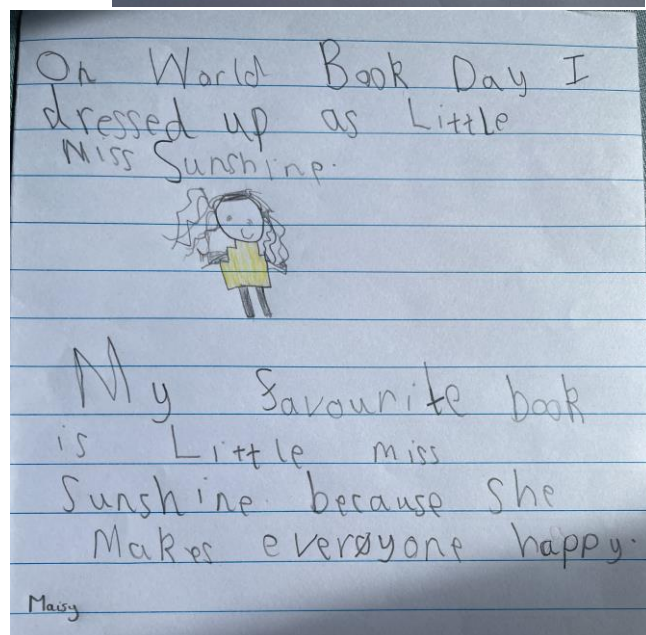 On World Book Day I
dressed up as Little
Miss Sunshine.
My favourite book
is Little miss
Sunshine because she
Makes everyone happy.
Maisy